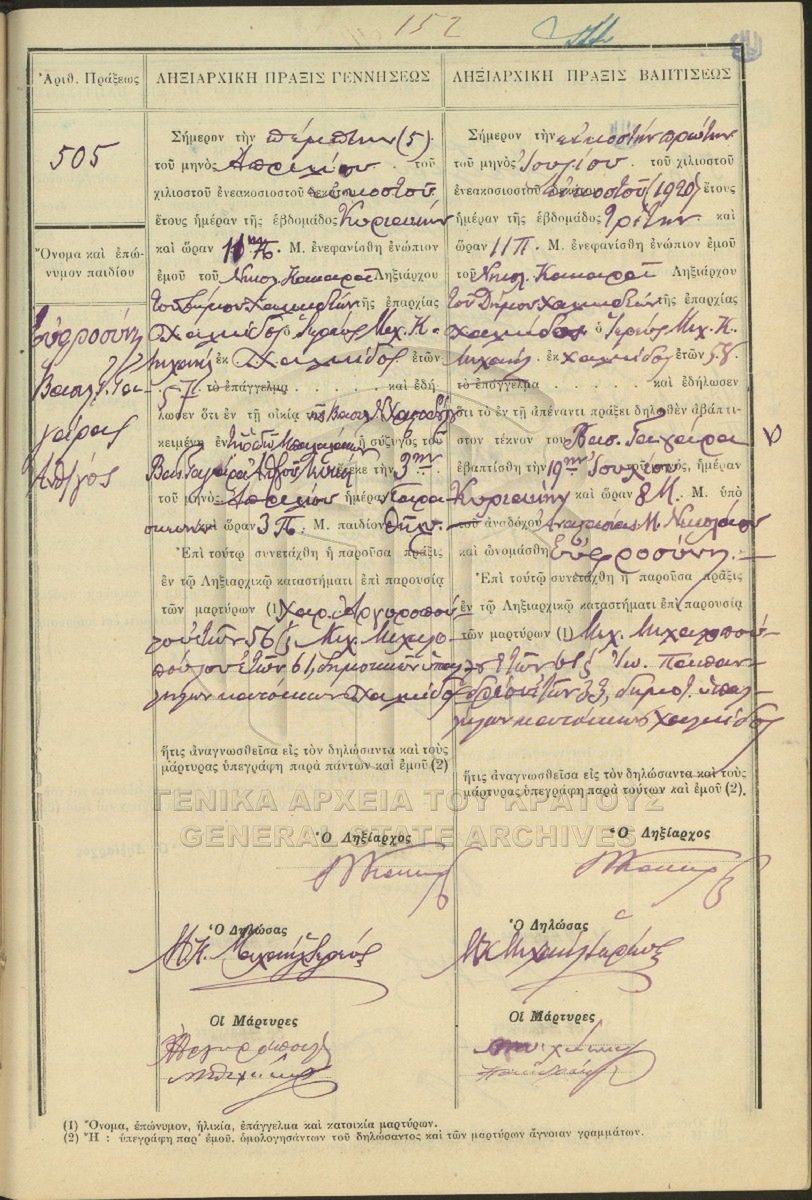 152
Ἀριθ. Πράξεως
505
Ὄνομα καὶ ἐπώ-
νυμον παιδίου
Εὐφροσύνη
Βασιλ. Τσι-
γάρας
ΛΗΞΙΑΡΧΙΚΗ ΠΡΑΞΙΣ ΓΕΝΝΗΣΕΩΣ
Σήμερον τὴν πέμπτην (5)
τοῦ μηνὸς Ἀπριλίου τοῦ
χιλιοστοῦ ἐνεακοσιοστοῦ εἰκοστοῦ
ἔτους ἡμέραν τῆς ἑβδομάδος Κυριακὴν
καὶ ὥραν 11 π. Μ. ἐνεφανίσθη ἐνώπιον
ἐμοῦ τοῦ Νικολ. Κακαρᾶ Ληξιάρχου
τοῦ Δήμου Χαλκιδέων τῆς ἐπαρχίας
Χαλκίδος ὁ Ἱερεὺς Μιχ. Κ.
Μιχαὴλ ἐκ Χαλκίδος ἐτῶν
57 τὸ ἐπάγγελμα . . . . . . καὶ ἐδή
λωσεν ὅτι ἐν τῇ οἰκίᾳ τῆς Βασ.
κειμένῃ ἐν ἡ σύζυγος τοῦ
Βασ. ἔτεκε τὴν 3ην
τοῦ μηνὸς Ἀπριλίου ἡμέραν Παρα
σκευὴν καὶ ὥραν 3 Π. Μ. παιδίον θῆλυ.
Ἐπὶ τούτῳ συνετάχθη ἡ παροῦσα πρᾶξις
ἐν τῷ Ληξιαρχικῷ καταστήματι ἐπὶ παρουσίᾳ
τῶν μαρτύρων (1) Χαρ. Ἀργυροπού
λου ἐτῶν 56 & Μιχ. Μιχαλο-
πούλου ἐτῶν 61, δημοτικῶν ὑπαλ
λήλων κατοίκων Χαλκίδος
ἥτις ἀναγνωσθεῖσα εἰς τὸν δηλώσαντα καὶ τοὺς
μάρτυρας ὑπεγράφη παρὰ πάντων καὶ ἐμοῦ (2)
Ὁ Ληξίαρχος
Ὁ Δηλώσας
Μ. Κ. Μιχαὴλ Ἱερεύς
Οἱ Μάρτυρες
ΛΗΞΙΑΡΧΙΚΗ ΠΡΑΞΙΣ ΒΑΠΤΙΣΕΩΣ
Σήμερον τὴν εἰκοστὴν πρώτην
τοῦ μηνὸς Ἰουλίου τοῦ χιλιοστοῦ
ἐνεακοσιοστοῦ εἰκοστοῦ (1920) ἔτους
ἡμέραν τῆς ἑβδομάδος Τρίτην καὶ
ὥραν 11 Π. Μ. ἐνεφανίσθη ἐνώπιον ἐμοῦ
τοῦ Νικολ. Κακαρᾶ Ληξιάρχου
τοῦ Δήμου Χαλκιδέων τῆς ἐπαρχίας
Χαλκίδος ὁ Ἱερεὺς Μιχ. Κ.
Μιχαὴλ ἐκ Χαλκίδος ἐτῶν 58
τὸ ἐπάγγελμα . . . . . . καὶ ἐδήλωσεν
ὅτι τὸ ἐν τῇ ἀπέναντι πράξει δηλωθὲν ἀβάπτι-
στον τέκνον τοῦ Βασ.
ἐβαπτίσθη τὴν 19ην Ἰουλίου ἡμέραν
Κυριακὴν καὶ ὥραν 8 Μ. Μ. ὑπὸ
τοῦ ἀναδόχου Ἀναστασίας Μ. Νικολάου
καὶ ὠνομάσθη Εὐφροσύνη.
Ἐπὶ τούτῳ συνετάχθη ἡ παροῦσα πρᾶξις
ἐν τῷ Ληξιαρχικῷ καταστήματι ἐπὶ παρουσίᾳ
τῶν μαρτύρων (1) Μιχ. Μιχαλοπού-
λου ἐτῶν 61 & Ἰω. Παπαν-
δρέου ἐτῶν 33, δημοτ. ὑπαλ-
λήλων κατοίκων Χαλκίδος
ἥτις ἀναγνωσθεῖσα εἰς τὸν δηλώσαντα καὶ τοὺς
μάρτυρας ὑπεγράφη παρὰ τούτων καὶ ἐμοῦ (2).
Ὁ Ληξίαρχος
Ὁ Δηλώσας
Μ. Κ. Μιχαὴλ Ἱερεύς
Οἱ Μάρτυρες
ΓΕΝΙΚΑ ΑΡΧΕΙΑ ΤΟΥ ΚΡΑΤΟΥΣ
GENERAL STATE ARCHIVES
(1) Ὄνομα, ἐπώνυμον, ἡλικία, ἐπάγγελμα καὶ κατοικία μαρτύρων.
(2) Ἢ : ὑπεγράφη παρ' ἐμοῦ. ὁμολογησάντων τοῦ δηλώσαντος καὶ τῶν μαρτύρων ἄγνοιαν γραμμάτων.